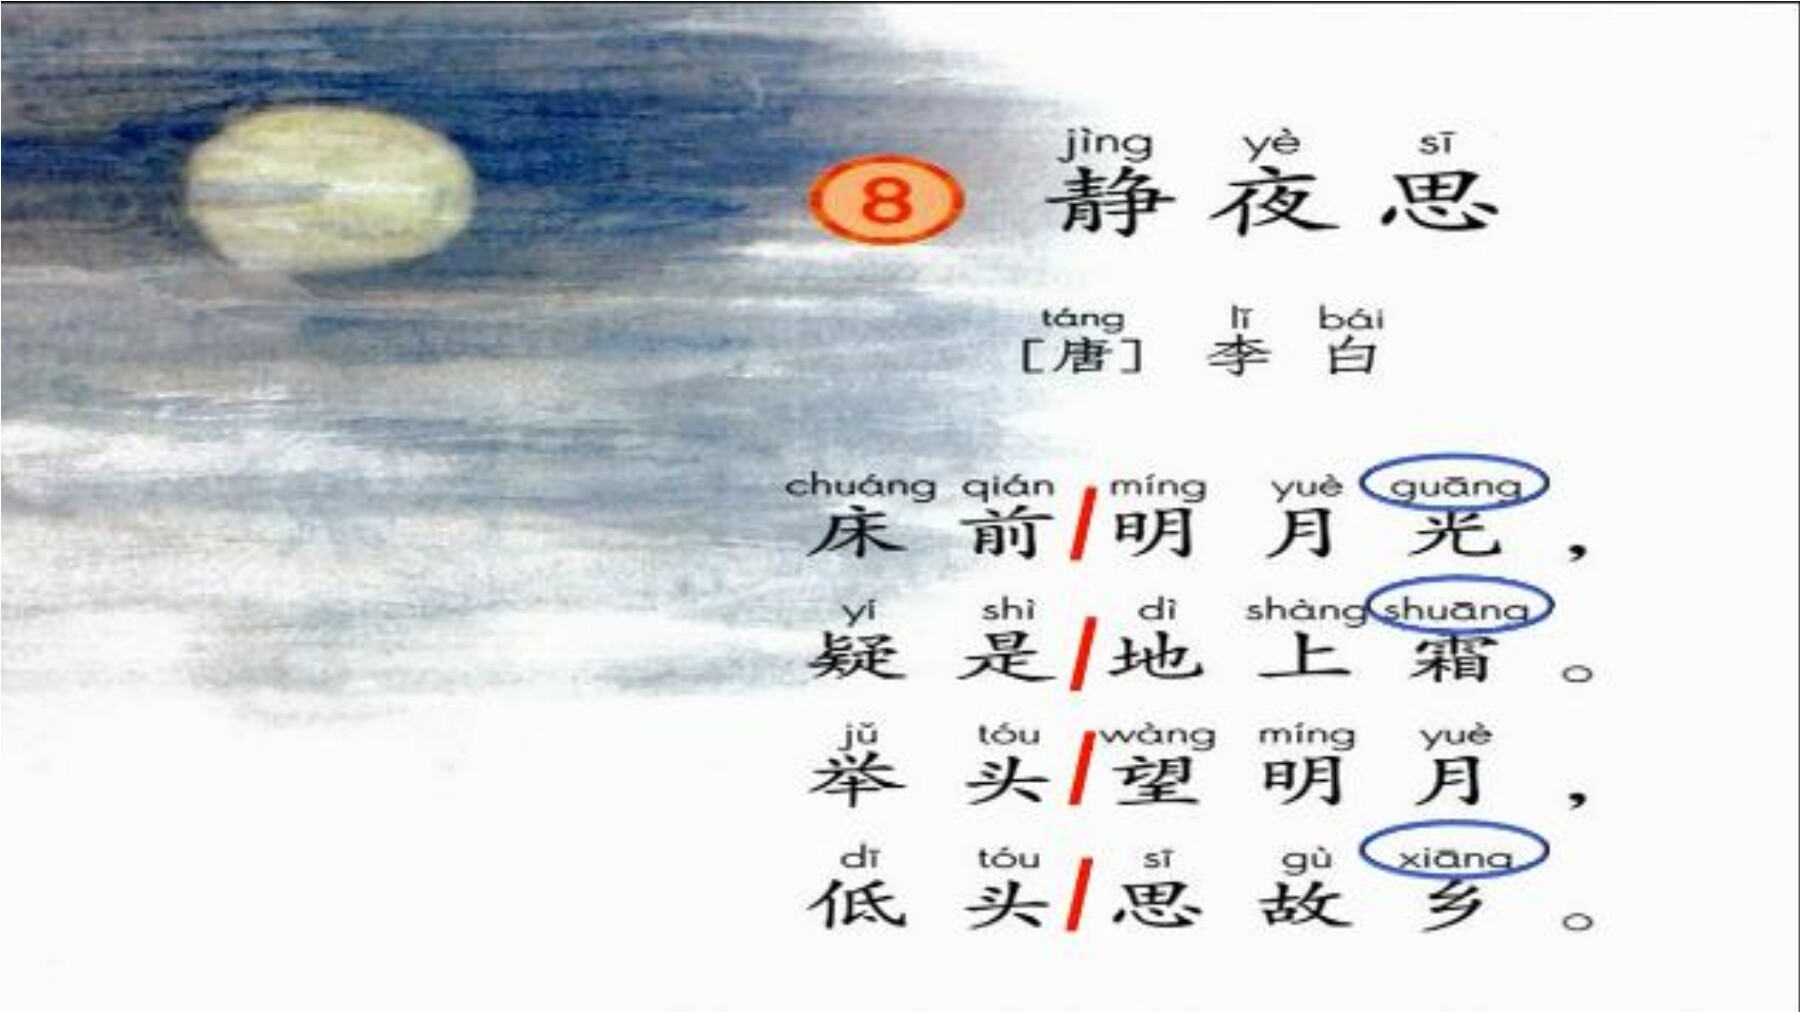 jìng yè sī
8 静夜思
táng lǐ bái
[唐] 李白
chuáng qián míng yuè guāng
床前/明月光，
yí shì dì shàng shuāng
疑是/地上霜。
jǔ tóu wàng míng yuè
举头/望明月，
dī tóu sī gù xiāng
低头/思故乡。